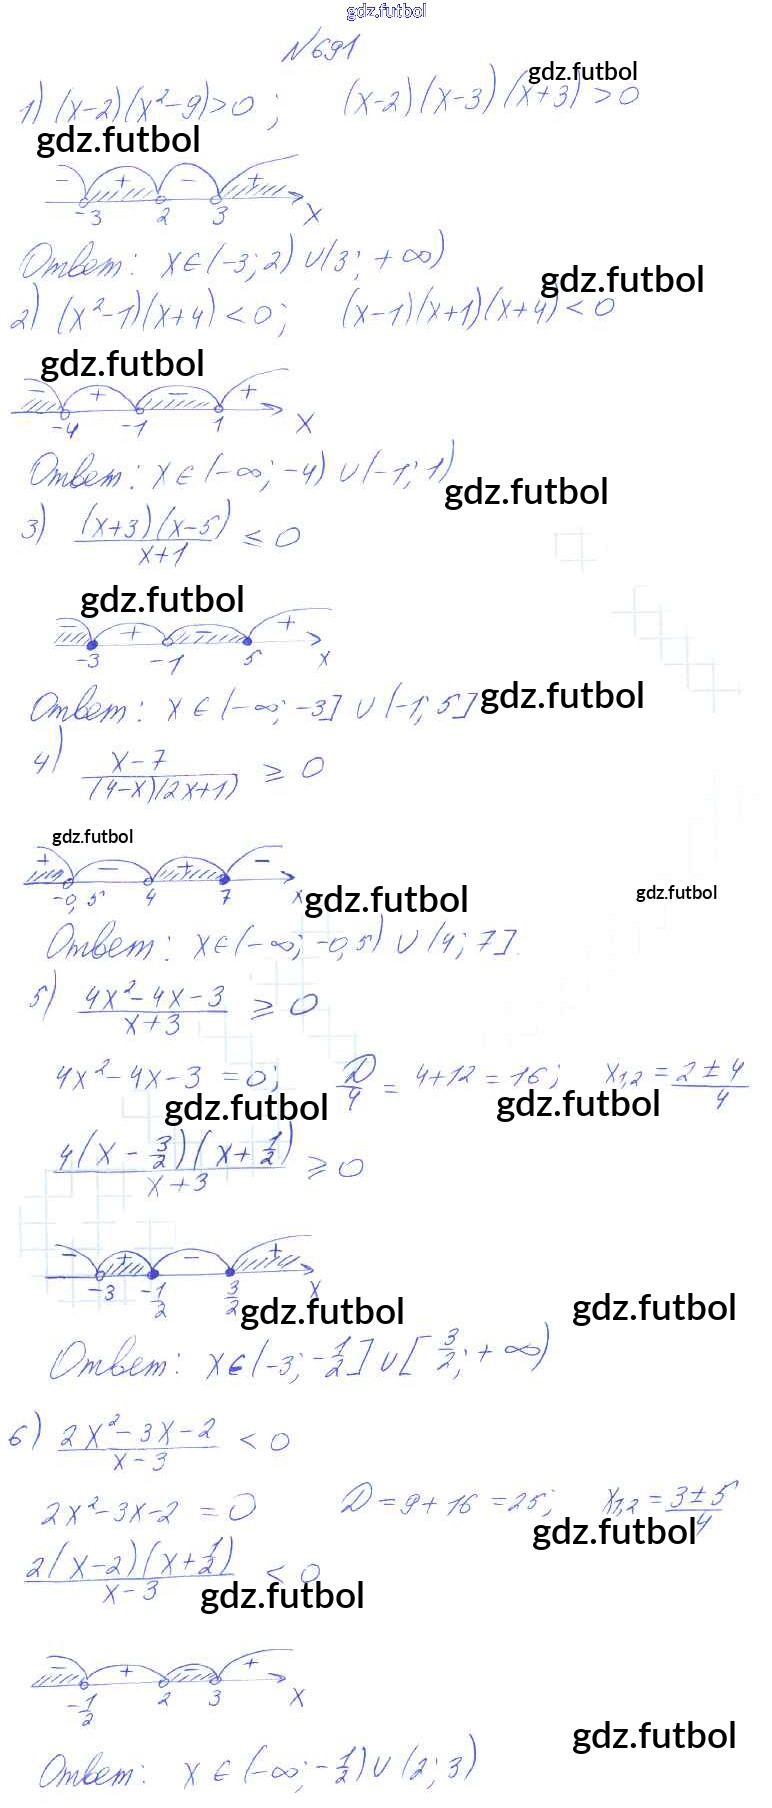 gdz.futbol
№691
gdz.futbol
1) (x-2)(x²-9)>0 ; (x-2)(x-3)(x+3)>0
gdz.futbol
- + - +
-3 2 3 x
Ответ: x∈(-3;2)∪(3;+∞)
gdz.futbol
2) (x²-1)(x+4)<0; (x-1)(x+1)(x+4)<0
gdz.futbol
- + - +
-4 -1 1 x
Ответ: x∈(-∞;-4)∪(-1;1)
gdz.futbol
3) (x+3)(x-5)/(x+1) ≤ 0
gdz.futbol
- + - +
-3 -1 5 x
Ответ: x∈(-∞;-3]∪(-1;5]
gdz.futbol
4) (x-7)/((4-x)(2x+1)) ≥ 0
gdz.futbol
+ - + -
-0,5 4 7 x
gdz.futbol
gdz.futbol
Ответ: x∈(-∞;-0,5)∪(4;7].
5) (4x²-4x-3)/(x+3) ≥ 0
4x²-4x-3=0; D/4 = 4+12=16; x1,2 = (2±4)/4
gdz.futbol
gdz.futbol
4(x-3/2)(x+1/2)/(x+3) ≥ 0
- + - +
-3 -1/2 3/2 x
gdz.futbol
gdz.futbol
Ответ: x∈(-3;-1/2]∪[3/2;+∞)
6) (2x²-3x-2)/(x-3) < 0
2x²-3x-2=0 D=9+16=25; x1,2 = (3±5)/4
gdz.futbol
2(x-2)(x+1/2)/(x-3) < 0
gdz.futbol
- + - +
-1/2 2 3 x
gdz.futbol
Ответ: x∈(-∞;-1/2)∪(2;3)